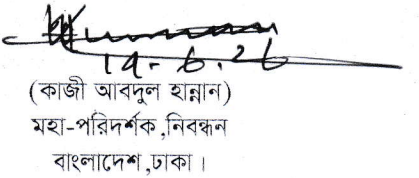 19-6.26
(কাজী আবদুল হান্নান)
মহা-পরিদর্শক,নিবন্ধন
বাংলাদেশ,ঢাকা।